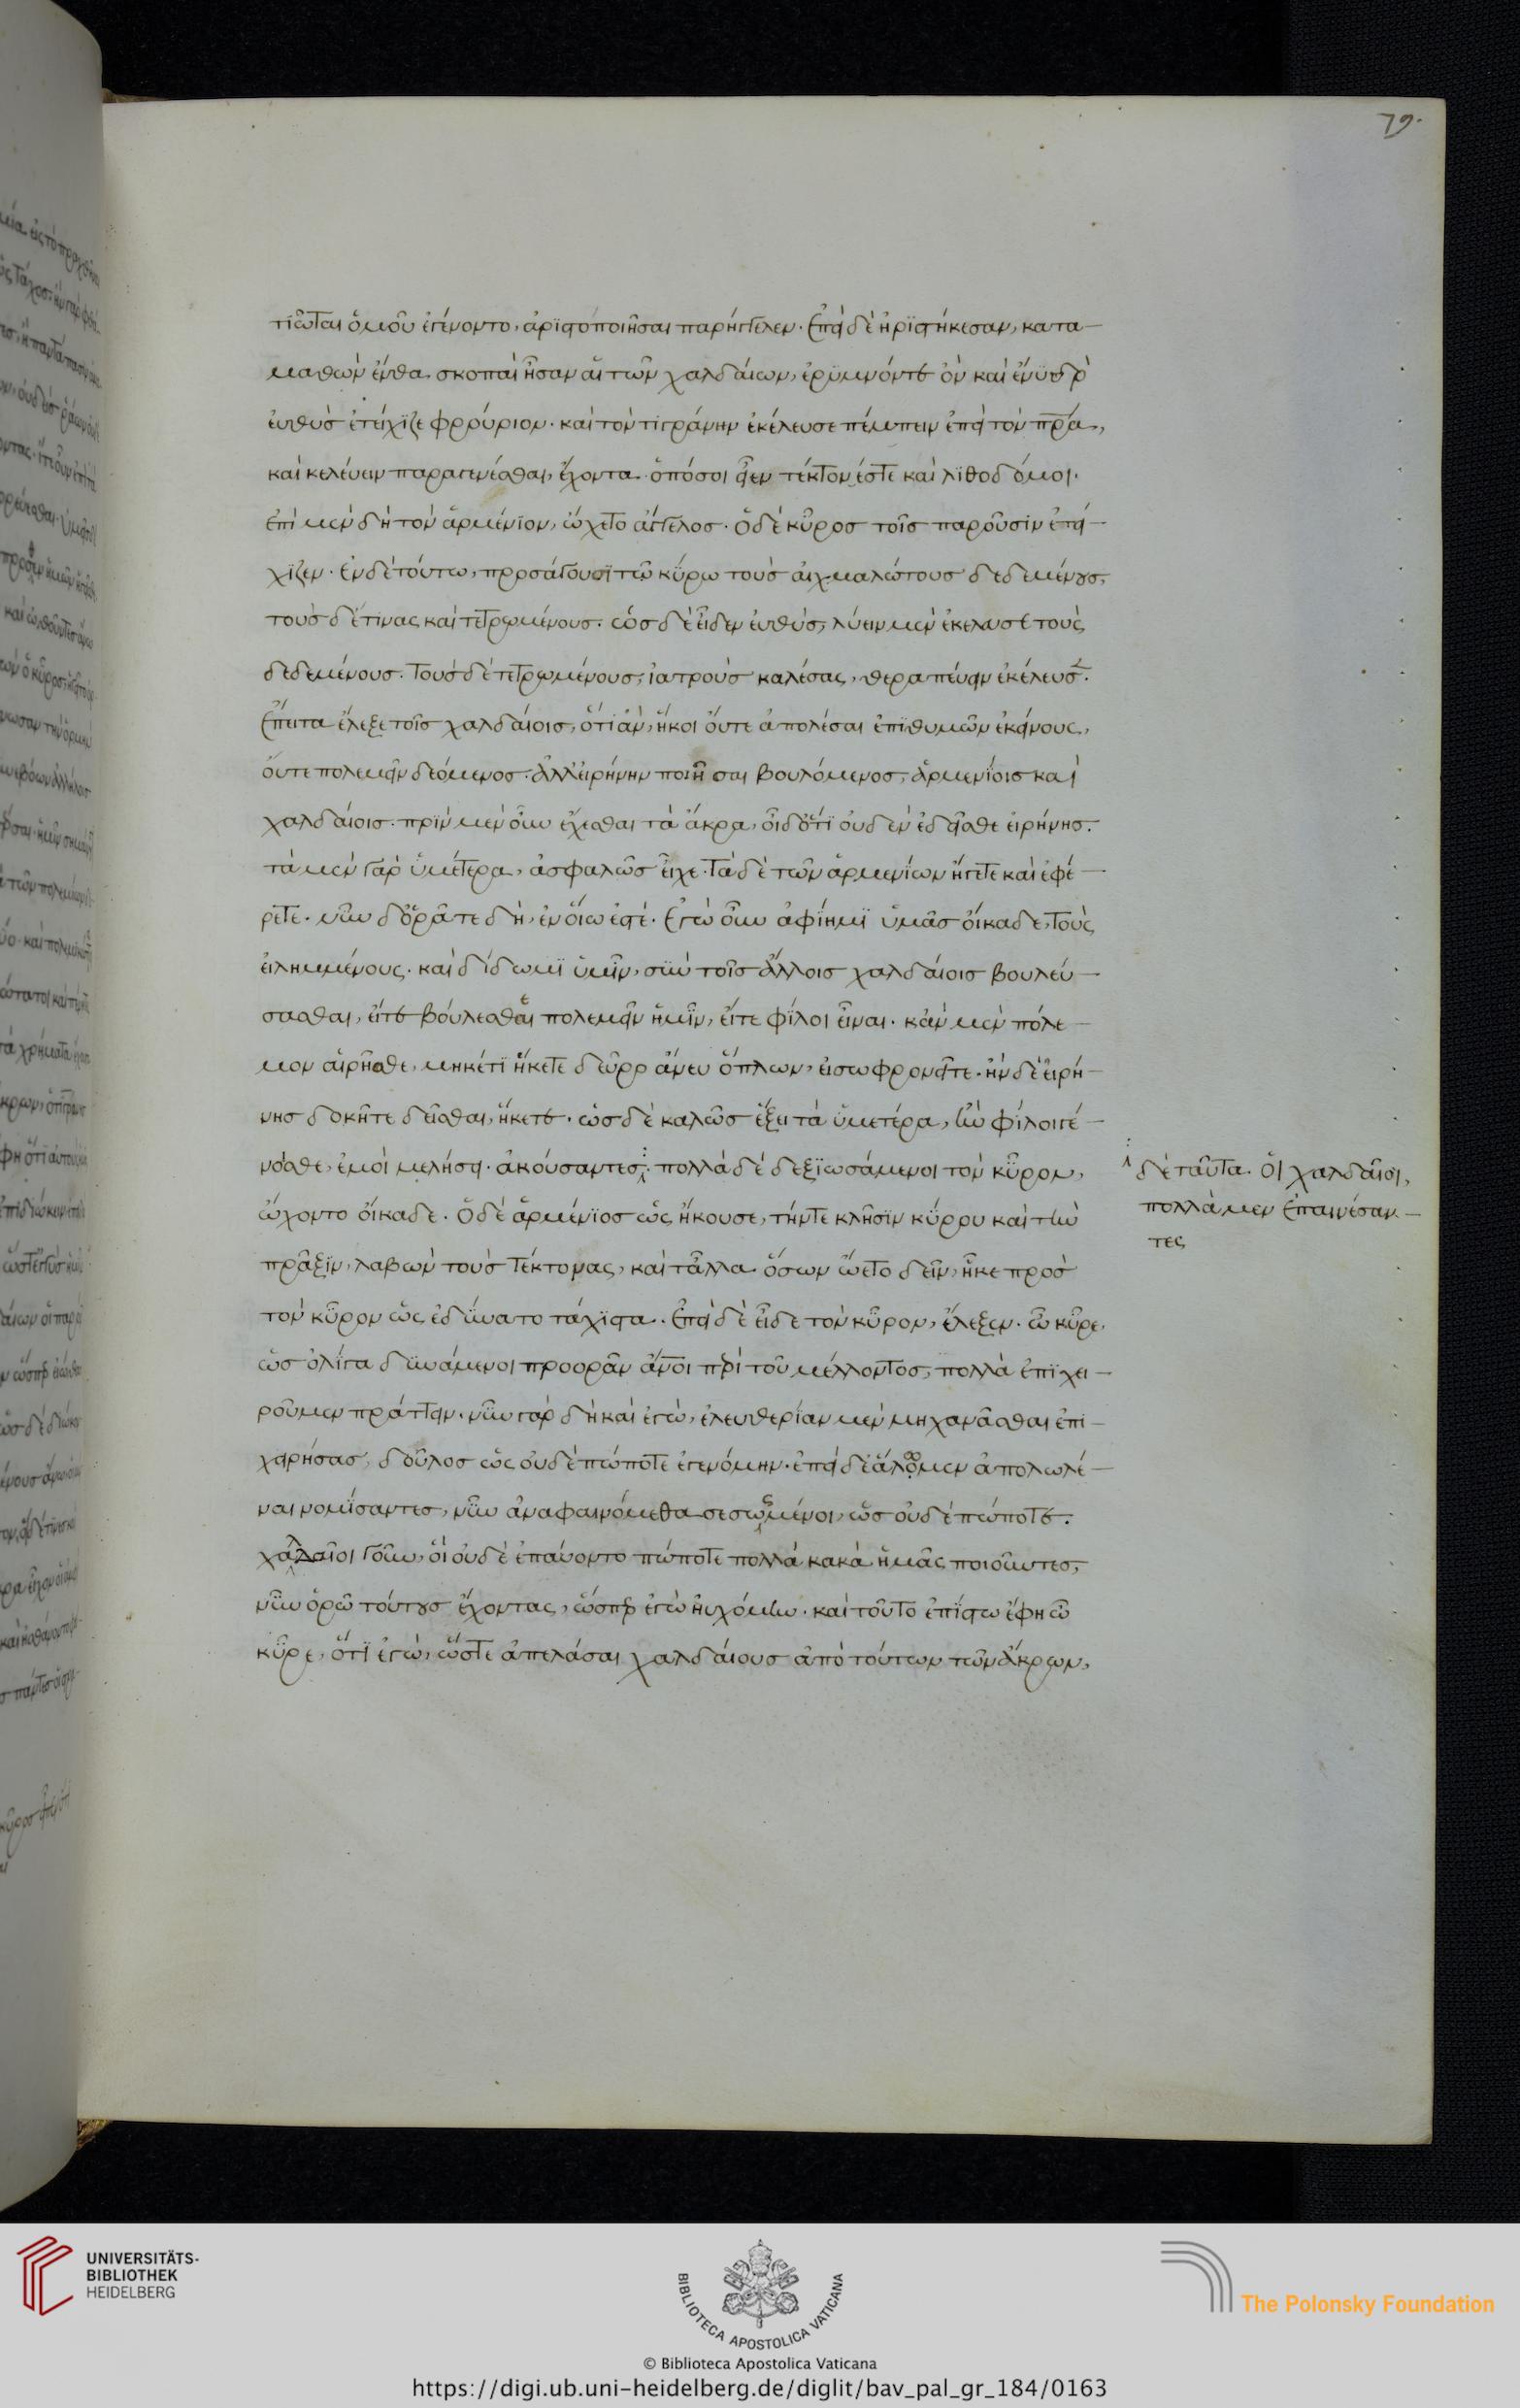 79.
τιῶται ὁμοῦ ἐγένοντο, ἀριστοποιῆσαι παρήγγελεν. Ἐπεὶ δὲ ἠρϊστήκεσαν, κατα-
μαθὼν ἔνθα σκοπαὶ ἦσαν αἱ τῶν χαλδαίων, ἐρϋμνόντε ὂν καὶ ἔνϋδρ
ευθὺσ ἐτείχϊζε φρούριον. καὶ τὸν τιγράνην ἐκέλευσε πέμπειν ἐπὶ τὸν πρα,
καὶ κελέυειν παραγενέσθαι, ἔχοντα ὁπόσοι εἶεν τέκτονέστε καὶ λϊθοδόμοι.
ἐπὶ μὲν δὴ τὸν ἀρμένϊον, ὤχετο ἄγγελοσ. Ὁ δὲ κῦροσ τοῖσ παροῦσϊν ἐτεί-
χϊζεν. Ἐν δὲ τούτω, προσάγουσϊ τῶ κύρω τοὺσ αἰχμαλώτουσ δεδεμένουσ,
τοὺσ δέ τϊνας καὶ τετρωμένουσ. ὡσ δὲ εἶδεν ευθὺσ, λύειν μὲν ἐκέλευσε τοὺς
δεδεμένουσ. Τοὺσ δὲ τετρωμένουσ, ἰατροὺσ καλέσας, θεραπέυειν ἐκέλευσε.
Ἔπειτα ἔλεξε τοῖσ χαλδαίοισ, ὅτι ἂν, ἥκοι ὄυτε ἀπολέσαι ἐπϊθυμῶν ἐκείνους,
ὄυτε πολεμεῖν δεόμενοσ. ἀλλ' ειρήνην ποιῆσαι βουλόμενοσ, ἀρμενίοισ καὶ
χαλδαίοισ. πρὶν μὲν οὖν ἔχεσθαι τὰ ἄκρα, οἶδ' ὅτϊ ουδὲν ἐδεῖσθε ειρήνησ.
τὰ μὲν γὰρ ὑμέτερα, ἀσφαλῶσ εἶχε. Τὰ δὲ τῶν ἀρμενίων ἤγετε καὶ ἐφέ-
ρετε. νῦν δ' ὁρᾶτε δὴ, ἐν ὅιω ἐστέ. Ἐγὼ οὖν ἀφίημϊ ὑμᾶσ ὄικαδε, τοὺς
ειλημμένους. καὶ δίδωμϊ ὑμῖν, σὺν τοῖσ ἄλλοισ χαλδαίοισ βουλεύ-
σασθαι, εἴτε βόυλεσθαι πολεμεῖν ἡμῖν, εἴτε φίλοι εἶναι. κἂν μὲν πόλε-
μον αἱρῆσθε, μηκέτϊ ἥκετε δεῦρο ἄνευ ὅπλων, ει σωφρονεῖτε. ἢν δὲ ειρή-
νησ δοκῆτε δεῖσθαι, ἥκετε. ὡσ δὲ καλῶσ ἕξει τὰ ὑμετέρα, ἢν φίλοι γέ-
νησθε, ἐμοὶ μελήσει. ἀκόυσαντεσ. πολλὰ δὲ δεξϊωσάμενοι τὸν κῦρον,
ὤχοντο ὄικαδε. Ὁ δὲ ἀρμένϊοσ ὡς ἤκουσε, τήντε κλῆσϊν κύρου καὶ τὴν
πρᾶξϊν, λαβὼν τοὺσ τέκτονας, καὶ τἆλλα ὅσων ᾤετο δεῖν, ἧκε πρὸσ
τὸν κῦρον ὡς ἐδύνατο τάχϊστα. Ἐπεὶ δὲ εἶδε τὸν κῦρον, ἔλεξεν. ὦ κῦρε,
ὡσ ὀλίγα δϋνάμενοι προορᾶν ἄνοι περὶ τοῦ μέλλοντοσ, πολλὰ ἐπϊχει-
ροῦμεν πράττειν. νῦν γὰρ δὴ καὶ ἐγὼ, ἐλευθερίαν μὲν μηχανᾶσθαι ἐπι-
χειρήσας, δοῦλοσ ὡς ουδὲ πώποτε ἐγενόμην. ἐπεὶ δ' ἑάλωμεν ἀπολωλέ-
ναι νομΐσαντεσ, νῦν ἀναφαινόμεθα σεσωσμένοι, ὡσ ουδὲ πώποτε.
χαλδαῖοι γοῦν, ὁὶ ουδὲ ἐπάυοντο πώποτε πολλὰ κακὰ ἡμᾶς ποιοῦντεσ,
νῦν ὁρῶ τόυτουσ ἔχοντας, ὥσπερ ἐγὼ ηυχόμην. καὶ τοῦτο ἐπίστω ἔφη ὦ
κῦρε, ὅτϊ ἐγὼ, ὥστε ἀπελάσαι χαλδαίουσ ἀπὸ τόυτων τῶν ἄκρων,
δὲ ταῦτα ὁι χαλδαῖοι,
πολλὰ μὲν ἐπαινέσαν-
τες
UNIVERSITÄTS-
BIBLIOTHEK
HEIDELBERG
BIBLIOTECA APOSTOLICA VATICANA
The Polonsky Foundation
© Biblioteca Apostolica Vaticana
https://digi.ub.uni-heidelberg.de/diglit/bav_pal_gr_184/0163